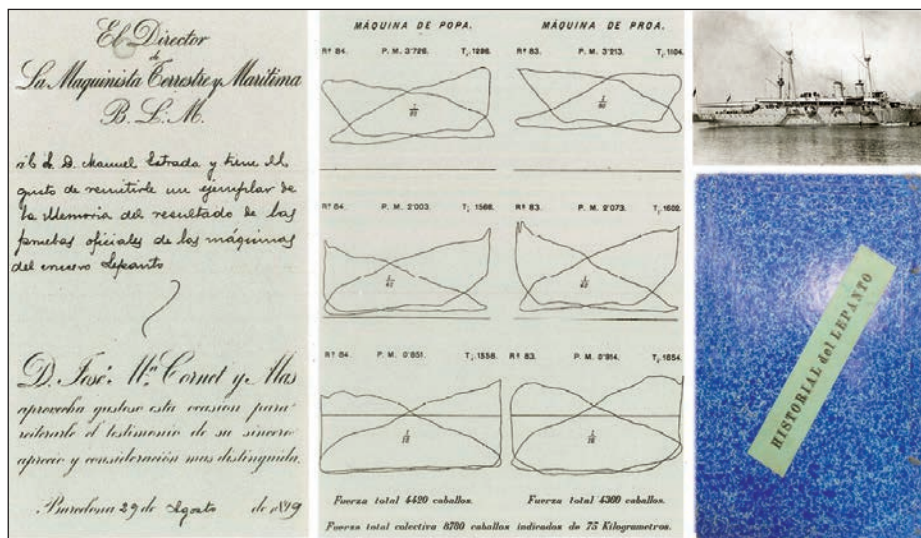 El Director
de
La Maquinista Terrestre y Marítima
B. L. M.
D. Manuel Estrada y tiene el
gusto de remitirle un ejemplar de
la Memoria del resultado de las
pruebas oficiales de las máquinas
del crucero Lepanto
D. José Mª. Cornet y Mas
aprovecha gustoso esta ocasion para
reiterarle el testimonio de su sincero
aprecio y consideración mas distinguida.
Barcelona 29 de Agosto de 1899
MÁQUINA DE POPA. MÁQUINA DE PROA.
Rˢ 84. P. M. 3'726. Tᵢ 1296. Rˢ 83. P. M. 3'213. Tᵢ 1104.
Rˢ 84. P. M. 2'003. Tᵢ 1566. Rˢ 83. P. M. 2'073. Tᵢ 1602.
Rˢ 84. P. M. 0'851. Tᵢ 1558. Rˢ 83. P. M. 0'914. Tᵢ 1654.
Fuerza total 4420 caballos. Fuerza total 4360 caballos.
Fuerza total colectiva 8780 caballos indicados de 75 Kilogrametros.
HISTORIAL del LEPANTO